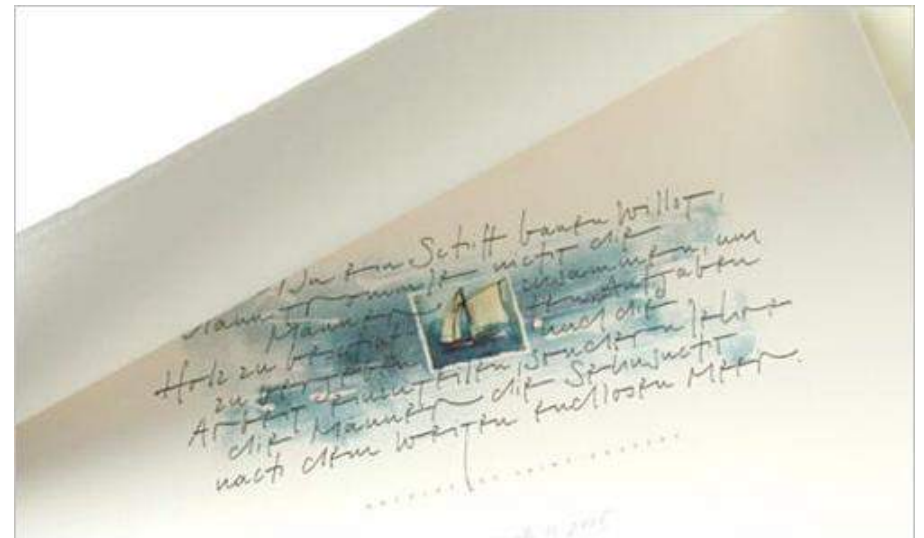 Wenn Du ein Schiff bauen willst,
dann trommle nicht die
Männer zusammen, um
Holz zu beschaffen, Aufgaben
zu vergeben und die
Arbeit einzuteilen, sondern lehre
die Männer die Sehnsucht
nach dem weiten endlosen Meer.
ANTOINE DE SAINT-EXUPÉRY